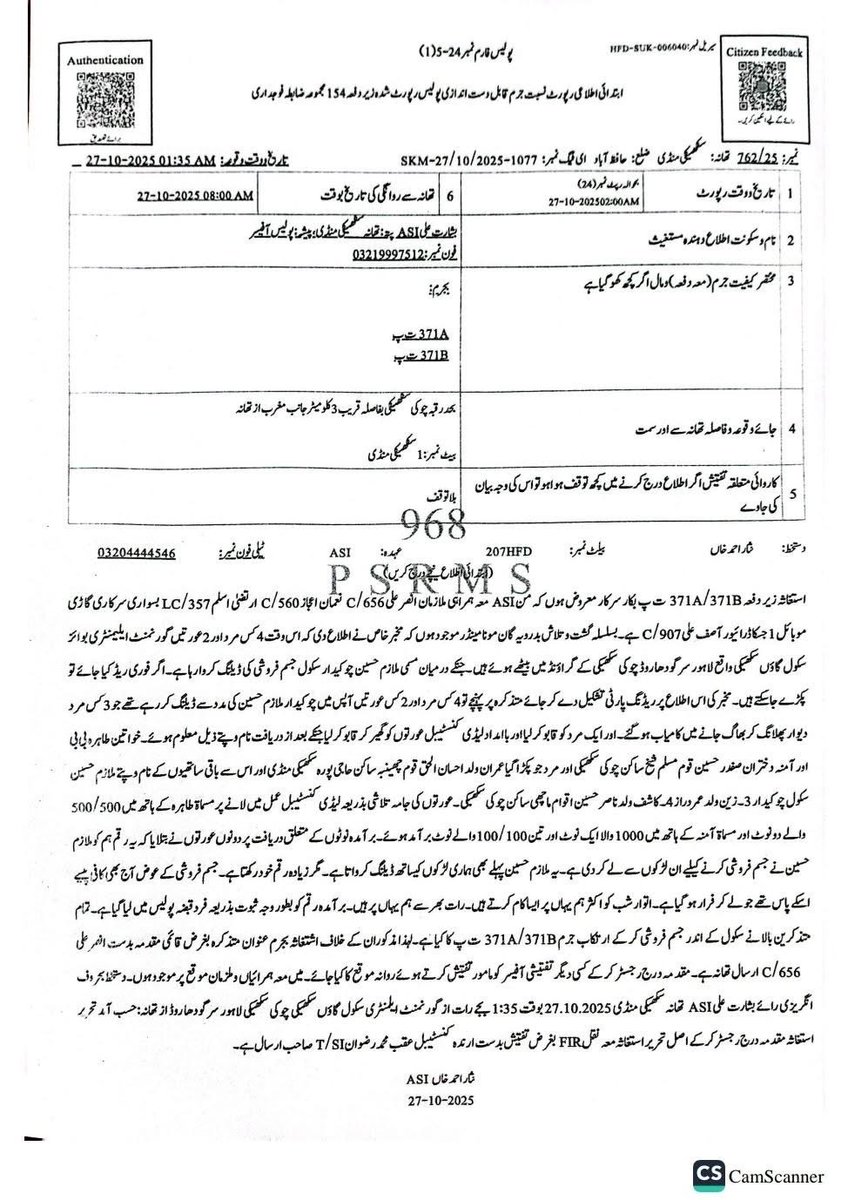 Authentication
برائے تصدیق
پولیس فارم نمبر 24-5(1)
سیریل نمبر:HFD-SUK-006040
Citizen Feedback
رائے کے لیے اسکین کریں۔
ابتدائی اطلاعی رپورٹ نسبت جرم قابل دست اندازی پولیس رپورٹ شدہ زیر دفعہ 154 مجموعہ ضابطہ فوجداری
نمبر: 762/25 تھانہ: سکھیکی منڈی ضلع: حافظ آباد ای ٹیگ نمبر: SKM-27/10/2025-1077 تاریخ ووقت وقوعہ: 27-10-2025 01:35 AM
1 تاریخ ووقت رپورٹ بحوالہ رپٹ نمبر (24) 27-10-202502:00AM 6 تھانہ سے روانگی کی تاریخ بوقت 27-10-2025 08:00AM
2 نام وسکونت اطلاع دہندہ مستغیث بشارت علی ASI پتہ: تھانہ سکھیکی منڈی؛ پیشہ: پولیس آفیسر
فون نمبر:03219997512
3 مختصر کیفیت جرم (معہ دفعہ) ومال اگر کچھ کھو گیا ہے بجرم:
371A ت پ
371B ت پ
4 جائے وقوعہ وفاصلہ تھانہ سے اور سمت بحدرقبہ چوکی سکھیکی بفاصلہ قریب 3 کلومیٹر جانب مغرب از تھانہ
بیٹ نمبر: 1 سکھیکی منڈی
5 کاروائی متعلقہ تفتیش اگر اطلاع درج کرنے میں کچھ توقف ہوا ہو تو اس کی وجہ بیان کی جاوے بلا توقف
968
دستخط: نثار احمد خاں بیلٹ نمبر: 207HFD عہدہ: ASI ٹیلی فون نمبر: 03204444546
(ابتدائی اطلاع نیچے درج کریں)
PSRMS
استغاثہ زیر دفعہ 371A/371B ت پ بکار سرکار معروض ہوں کہ من ASI معہ ہمراہی ملازمان انصر علی 656/C نعمان اعجاز 560/C ارتضیٰ اسلم 357/LC بسواری سرکاری گاڑی
موبائل 1 جسکا ڈرائیور آصف علی 907/C ہے۔ بسلسلہ گشت و تلاش بدرویہ گان مونا مینڈر موجود ہوں کہ مخبر خاص نے اطلاع دی کہ اس وقت 4 کس مرد اور 2 عورتیں گورنمنٹ ایلیمینٹری بوائز
سکول گاؤں سکھیکی واقع لاہور سرگودھا روڈ چوکی سکھیکی کے گراؤنڈ میں بیٹھے ہوئے ہیں۔ جنکے درمیان مسمی ملازم حسین چوکیدار سکول جسم فروشی کی ڈیلنگ کروا رہا ہے۔ اگر فوری ریڈ کیا جائے تو
پکڑے جاسکتے ہیں۔ مخبر کی اس اطلاع پر ریڈنگ پارٹی تشکیل دے کر جائے متذکرہ پر پہنچے تو 4 کس مرد اور 2 کس عورتیں آپس میں چوکیدار ملازم حسین کی مدد سے ڈیلنگ کر رہے تھے جو 3 کس مرد
دیوار پھلانگ کر بھاگ جانے میں کامیاب ہو گئے۔ اور ایک مرد کو قابو کر لیا اور باامداد لیڈی کنسٹیبل عورتوں کو گھیر کر قابو کر لیا جنکے بعد از دریافت نام و پتے ذیل معلوم ہوئے۔ خواتین طاہرہ بی بی
اور آمنہ دختران صفدر حسین قوم مسلم شیخ ساکن چوکی سکھیکی اور مرد جو پکڑا گیا عمران ولد احسان الحق قوم چھینہ ساکن حاجی پورہ سکھیکی منڈی اور اس سے باقی ساتھیوں کے نام و پتے ملازم حسین
سکول چوکیدار 3۔ زین ولد عمر دراز 4۔ کاشف ولد ناصر حسین اقوام ماچھی ساکن چوکی سکھیکی۔ عورتوں کی جامہ تلاشی بذریعہ لیڈی کنسٹیبل عمل میں لانے پر مسماۃ طاہرہ کے ہاتھ میں 500/500
والے دو نوٹ اور مسماۃ آمنہ کے ہاتھ میں 1000 والا ایک نوٹ اور تین 100/100 والے نوٹ برآمد ہوئے۔ برآمدہ نوٹوں کے متعلق دریافت پر دونوں عورتوں نے بتلایا کہ یہ رقم ہم کو ملازم
حسین نے جسم فروشی کرنے کیلئے ان لڑکوں سے لے کر دی ہے۔ یہ ملازم حسین پہلے بھی ہماری لڑکوں کیساتھ ڈیلنگ کرواتا ہے۔ مگر زیادہ رقم خود رکھتا ہے۔ جسم فروشی کے عوض آج بھی کافی پیسے
اسکے پاس تھے جو لے کر فرار ہو گیا ہے۔ اتوار شب کو اکثر ہم یہاں پر ایسا کام کرتے ہیں۔ رات بھر سے ہم یہاں پر ہیں۔ برآمدہ رقم کو بطور وجہ ثبوت بذریعہ فرد قبضہ پولیس میں لیا گیا ہے۔ تمام
متذکرین بالا نے سکول کے اندر جسم فروشی کر کے ارتکاب جرم 371A/371B ت پ کا کیا ہے۔ لہذا مذکوران کے خلاف استغاثہ بجرم عنوان متذکرہ بغرض قائمی مقدمہ بدست انصر علی
656/C ارسال تھانہ ہے۔ مقدمہ درج رجسٹر کر کے کسی دیگر تفتیشی آفیسر کو مامور تفتیش کرتے ہوئے روانہ موقع کا کیا جائے۔ میں معہ ہمراہیاں و ملزمان موقع پر موجود ہوں۔ دستخط بحروف
انگریزی رائے بشارت علی ASI تھانہ سکھیکی منڈی 27.10.2025 بوقت 1:35 بجے رات از گورنمنٹ ایلمنٹری سکول گاؤں سکھیکی چوکی سکھیکی لاہور سرگودھا روڈ از تھانہ: حسب آمد تحریر
استغاثہ مقدمہ درج رجسٹر کر کے اصل تحریر استغاثہ معہ نقل FIR بغرض تفتیش بدست ارندہ کنسٹیبل عقب محمد رضوان T/SI صاحب ارسال ہے۔
نثار احمد خاں ASI
27-10-2025
CS CamScanner